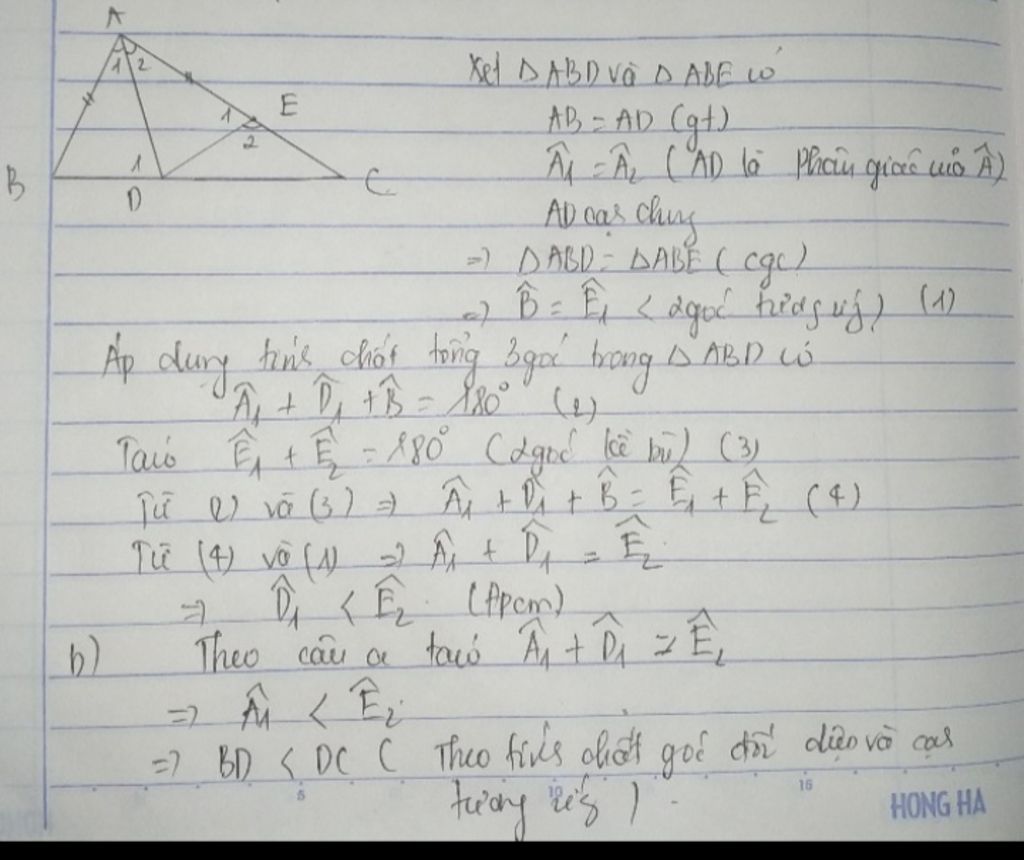 A
1 2
1 E
2
B 1 C
D
Xét ΔABD và ΔABE có
AB = AD (gt)
Â₁ = Â₂ (AD là phân giác của Â)
AD cạnh chung
=> ΔABD = ΔABE (cgc)
=> B̂ = Ê₁ < 2 góc tương ứng) (1)
Áp dụng tính chất tổng 3 góc trong ΔABD có
Â₁ + D̂₁ + B̂ = 180° (2)
Ta có Ê₁ + Ê₂ = 180° (2 góc kề bù) (3)
Từ (2) và (3) => Â₁ + D̂₁ + B̂ = Ê₁ + Ê₂ (4)
Từ (4) và (1) => Â₁ + D̂₁ = Ê₂
=> D̂₁ < Ê₂. (Đpcm)
b) Theo câu a ta có Â₁ + D̂₁ = Ê₂
=> Â₁ < Ê₂.
=> BD < DC ( Theo tính chất góc đối diện và cạnh
tương ứng ) .
5 10 15
HONG HA